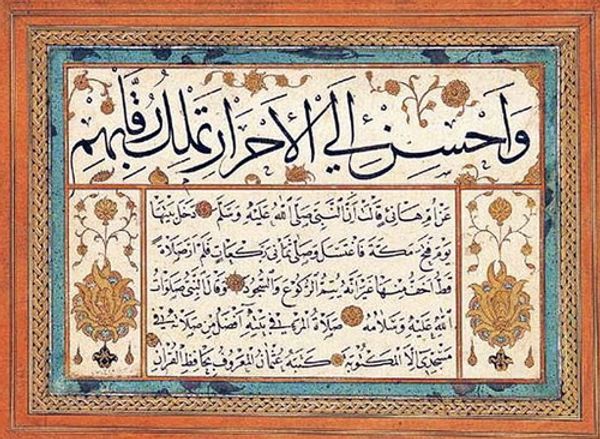 واحسن الي الاحرار تملك رقابهم
عن ام هاني قالت ان النبي صلى الله عليه وسلم دخل بيتها
يوم فتح مكة فاغتسل وصلى ثماني ركعات فلم ار صلاة
قط اخف منها غير انه يتم الركوع والسجود وقال النبي صلوات
الله عليه وسلامه صلاة المرء في بيته افضل من صلاته في
مسجدي هذا الا المكتوبة كتبه عثمان المعروف بحافظ القرآن